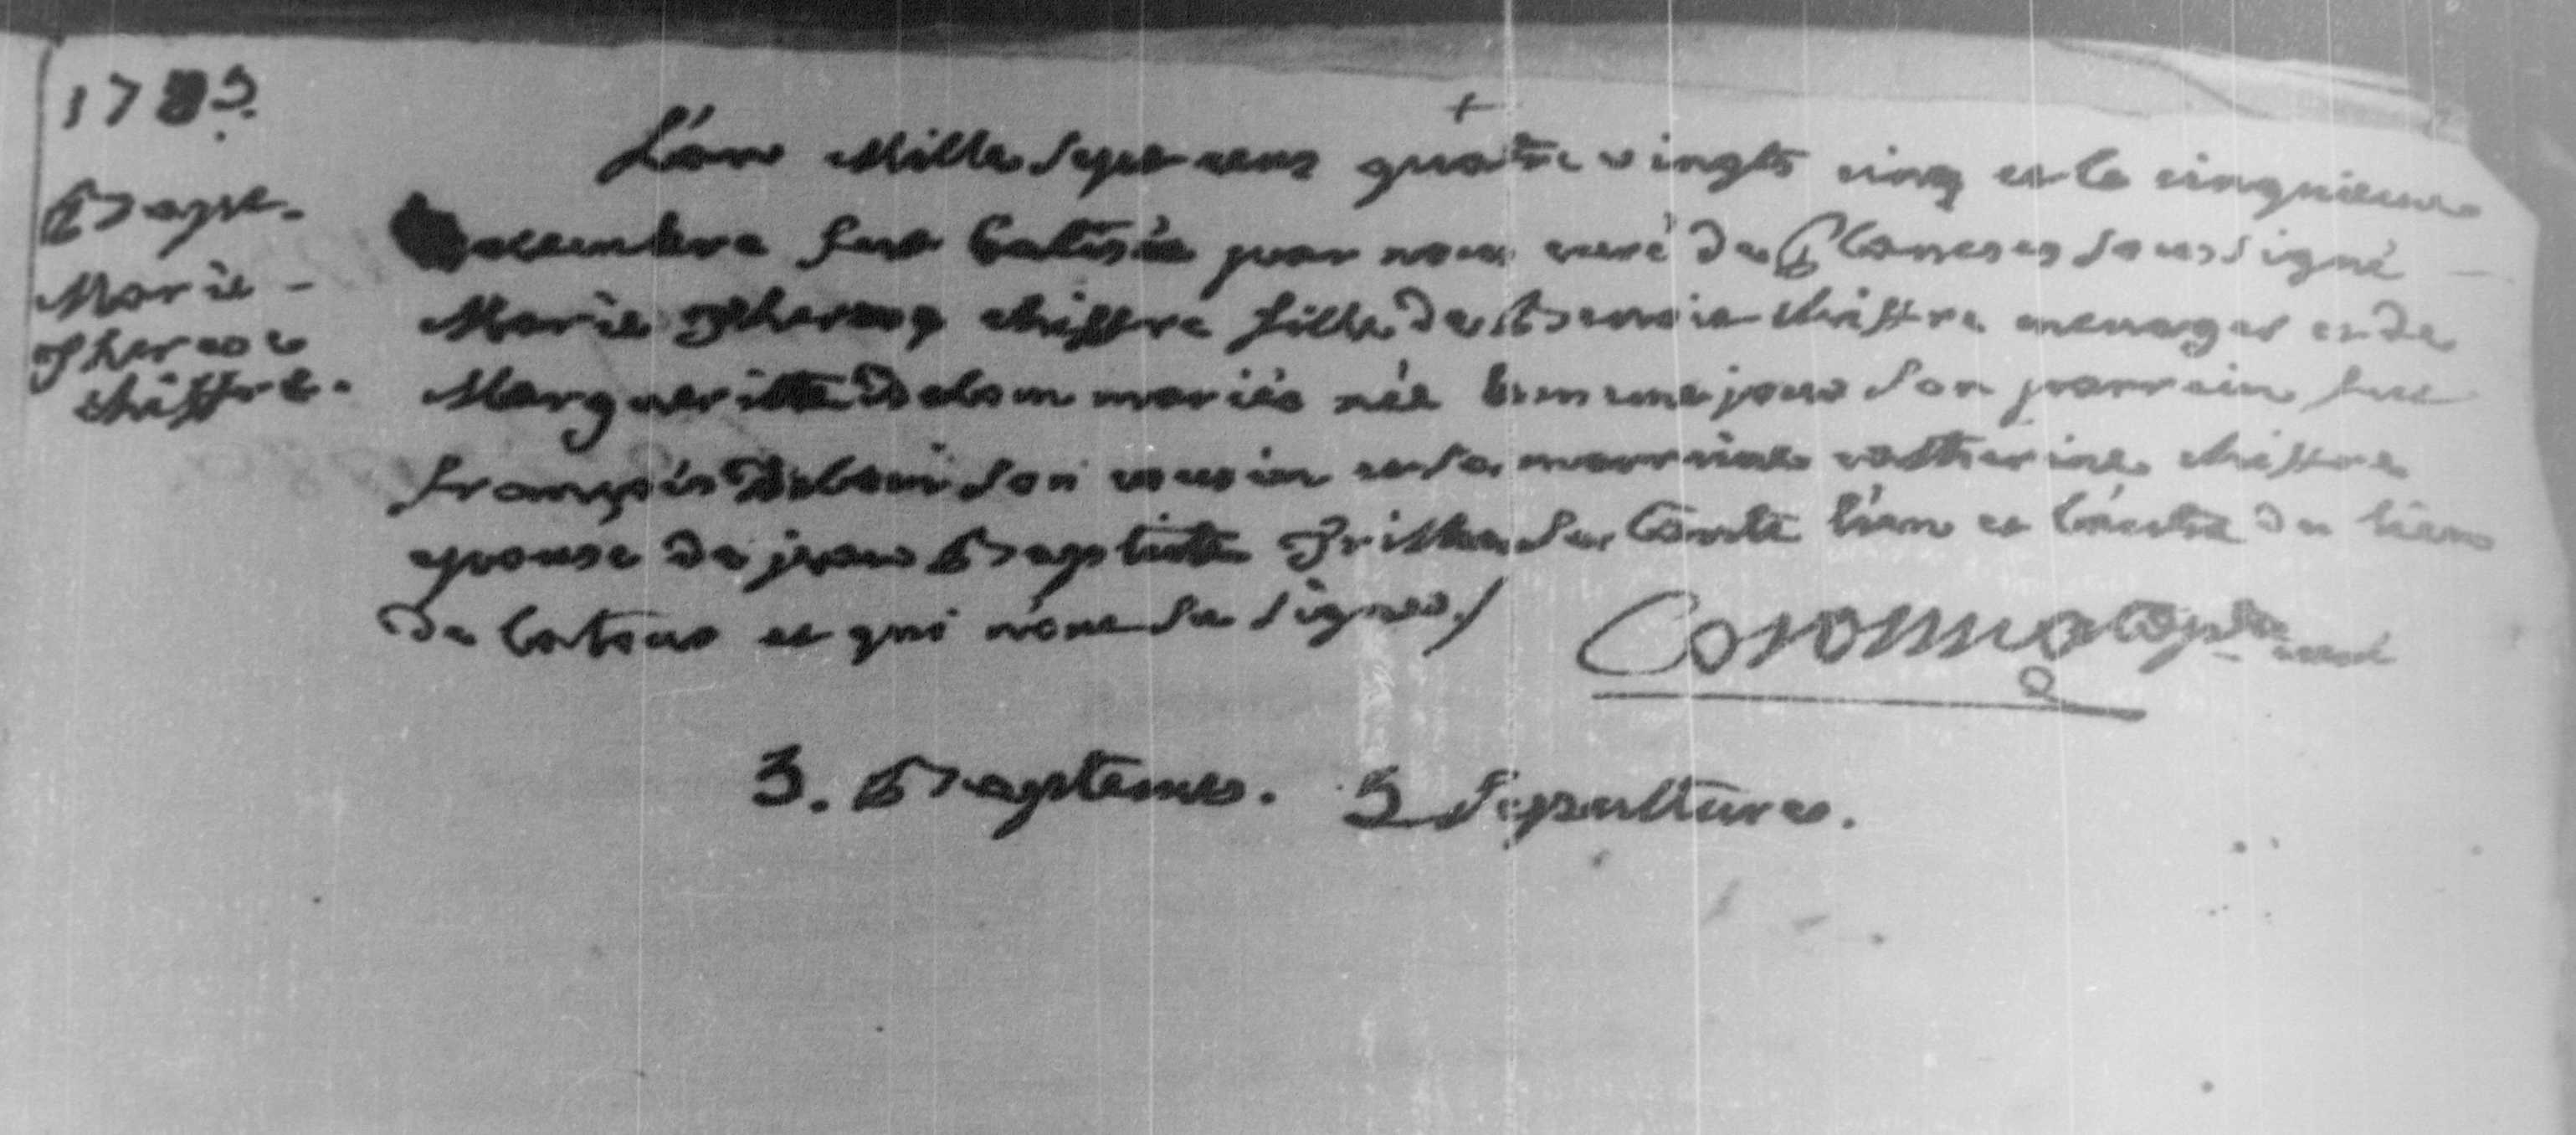 1785.
Bapt.
Marie -
Therese
chiffre.
+
L'an Mille Sept cens quatre vingts cinq et le cinquieme
decembre fut batisée par nous curé de Planeses soussigné
Marie Therese chiffre fille de Benoit chiffre menager et de
Margueritte Delom mariés née le meme jour son parrain fut
françois Delom son cousin et sa marraine catherine chiffre
epouse de jean Baptiste de l'un et l'autre du lieu
de latour et qui n'ont su signer./
3. Baptemes. 5 Sepultures.